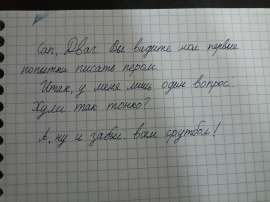 Сап, Двач. Вы видите мои первые
попытки писать пером.
Итак, у меня лишь один вопрос.
Хули так тонко?
А, ну и забыл. Всем футбол!